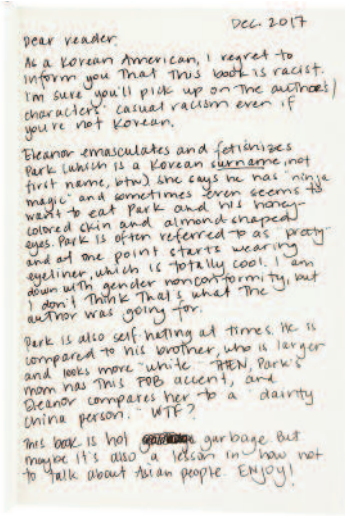 Dec. 2017
Dear reader,
As a Korean American, I regret to
inform you that this book is racist.
I'm sure you'll pick up on the author's/
characters' casual racism even if
you're not Korean.
Eleanor emasculates and fetishizes
Park (which is a Korean surname, not
first name, btw). She says he has "ninja
magic" and sometimes even seems to
want to eat Park and his honey-
colored skin and almond-shaped
eyes. Park is often referred to as "pretty"
and at one point starts wearing
eyeliner, which is totally cool. I am
down with gender nonconformity, but
I don't think that's what the
author was going for.
Park is also self-hating at times. He is
compared to his brother, who is larger
and looks more "white." THEN, Park's
mom has this FOB accent, and
Eleanor compares her to a "dainty
china person." WTF?
This book is hot garbage. But
maybe it's also a lesson in how not
to talk about Asian people. ENJOY!